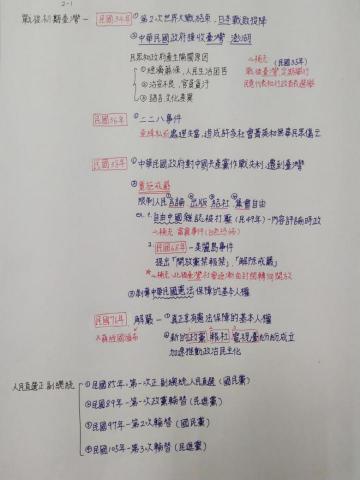 2-1
戰後初期臺灣－
民國34年
①第2次世界大戰結束，日本戰敗投降
②中華民國政府接收臺灣 澎湖
民眾和政府產生隔閡原因
①經濟蕭條，人民生活困苦
②治安不良，官員貪汙
③語言文化差異
補充（民國35年）
戰後臺灣定期舉行
民意代表和行政首長選舉
民國36年 二二八事件
處理失當，造成許多社會菁英和無辜民眾傷亡
民國38年 ①中華民國政府對中國共產黨作戰失利，遷到臺灣
②實施戒嚴
限制人民言論 出版 結社 集會自由
ex. 1. 自由中國雜誌被打壓（民49年）－內容評論時政
補充 雷震事件（白色恐怖）
2. 民國68年－美麗島事件
提出「開放黨禁報禁」、「解除戒嚴」
補充：此後臺灣社會逐漸由封閉轉向開放
③剝奪中華民國憲法保障的基本人權
民國76年 解嚴－ ①真正享有憲法保障的基本人權
蔣經國宣布
②新的政黨 報社 電視臺紛紛成立
加速推動政治民主化
人民直選正副總統
①民國85年，第一次正副總統人民直選（國民黨）
②民國89年－第一次政黨輪替（民進黨）
③民國97年－第2次輪替（國民黨）
④民國105年－第3次輪替（民進黨）